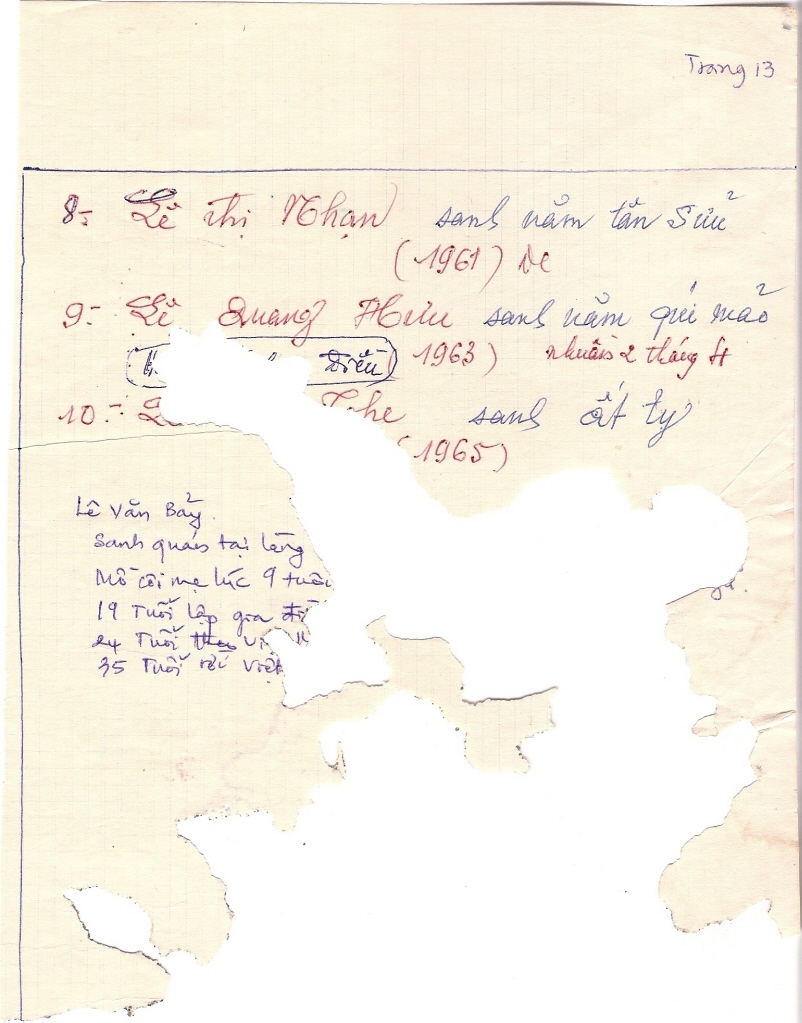 Trang 13
8- Lê thị Nhạn sanh năm tân Sửu
(1961) DC
9- Lê Quang Hưu sanh năm quí mảo
Điểu 1963) nhuần 2 tháng 4
10- sanh ất tỵ
(1965)
Lê Văn Bảy
Sanh quán tại làng
Mồ côi mẹ lúc 9 tuổi
19 Tuổi lập gia đì
24 Tuổi theo Vi
35 Tuổi rời Việt